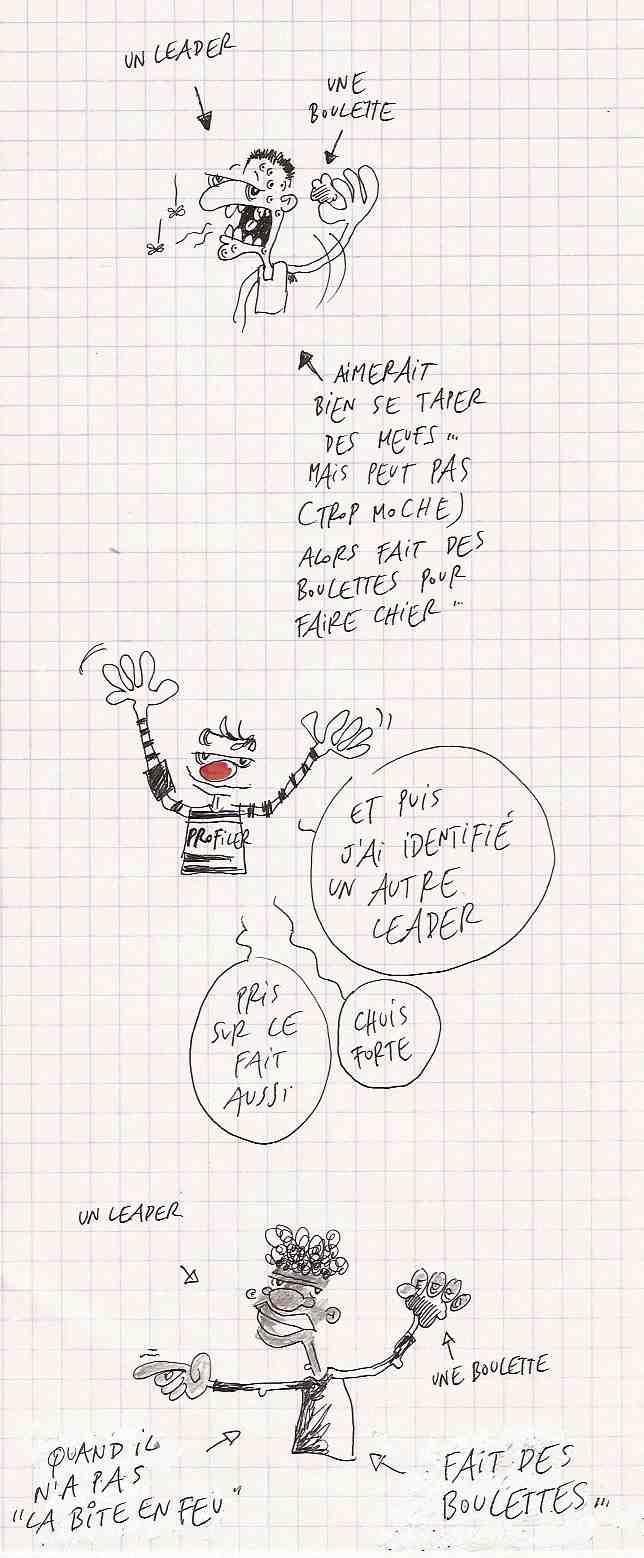 UN LEADER
UNE
BOULETTE
AIMERAIT
BIEN SE TAPER
DES MEUFS...
MAIS PEUT PAS
(TROP MOCHE)
ALORS FAIT DES
BOULETTES POUR
FAIRE CHIER...
PROFILER
ET PUIS
J'AI IDENTIFIÉ
UN AUTRE
LEADER
PRIS
SUR LE
FAIT
AUSSI
CHUIS
FORTE
UN LEADER
UNE BOULETTE
QUAND IL
N'A PAS
"LA BITE EN FEU"
FAIT DES
BOULETTES...